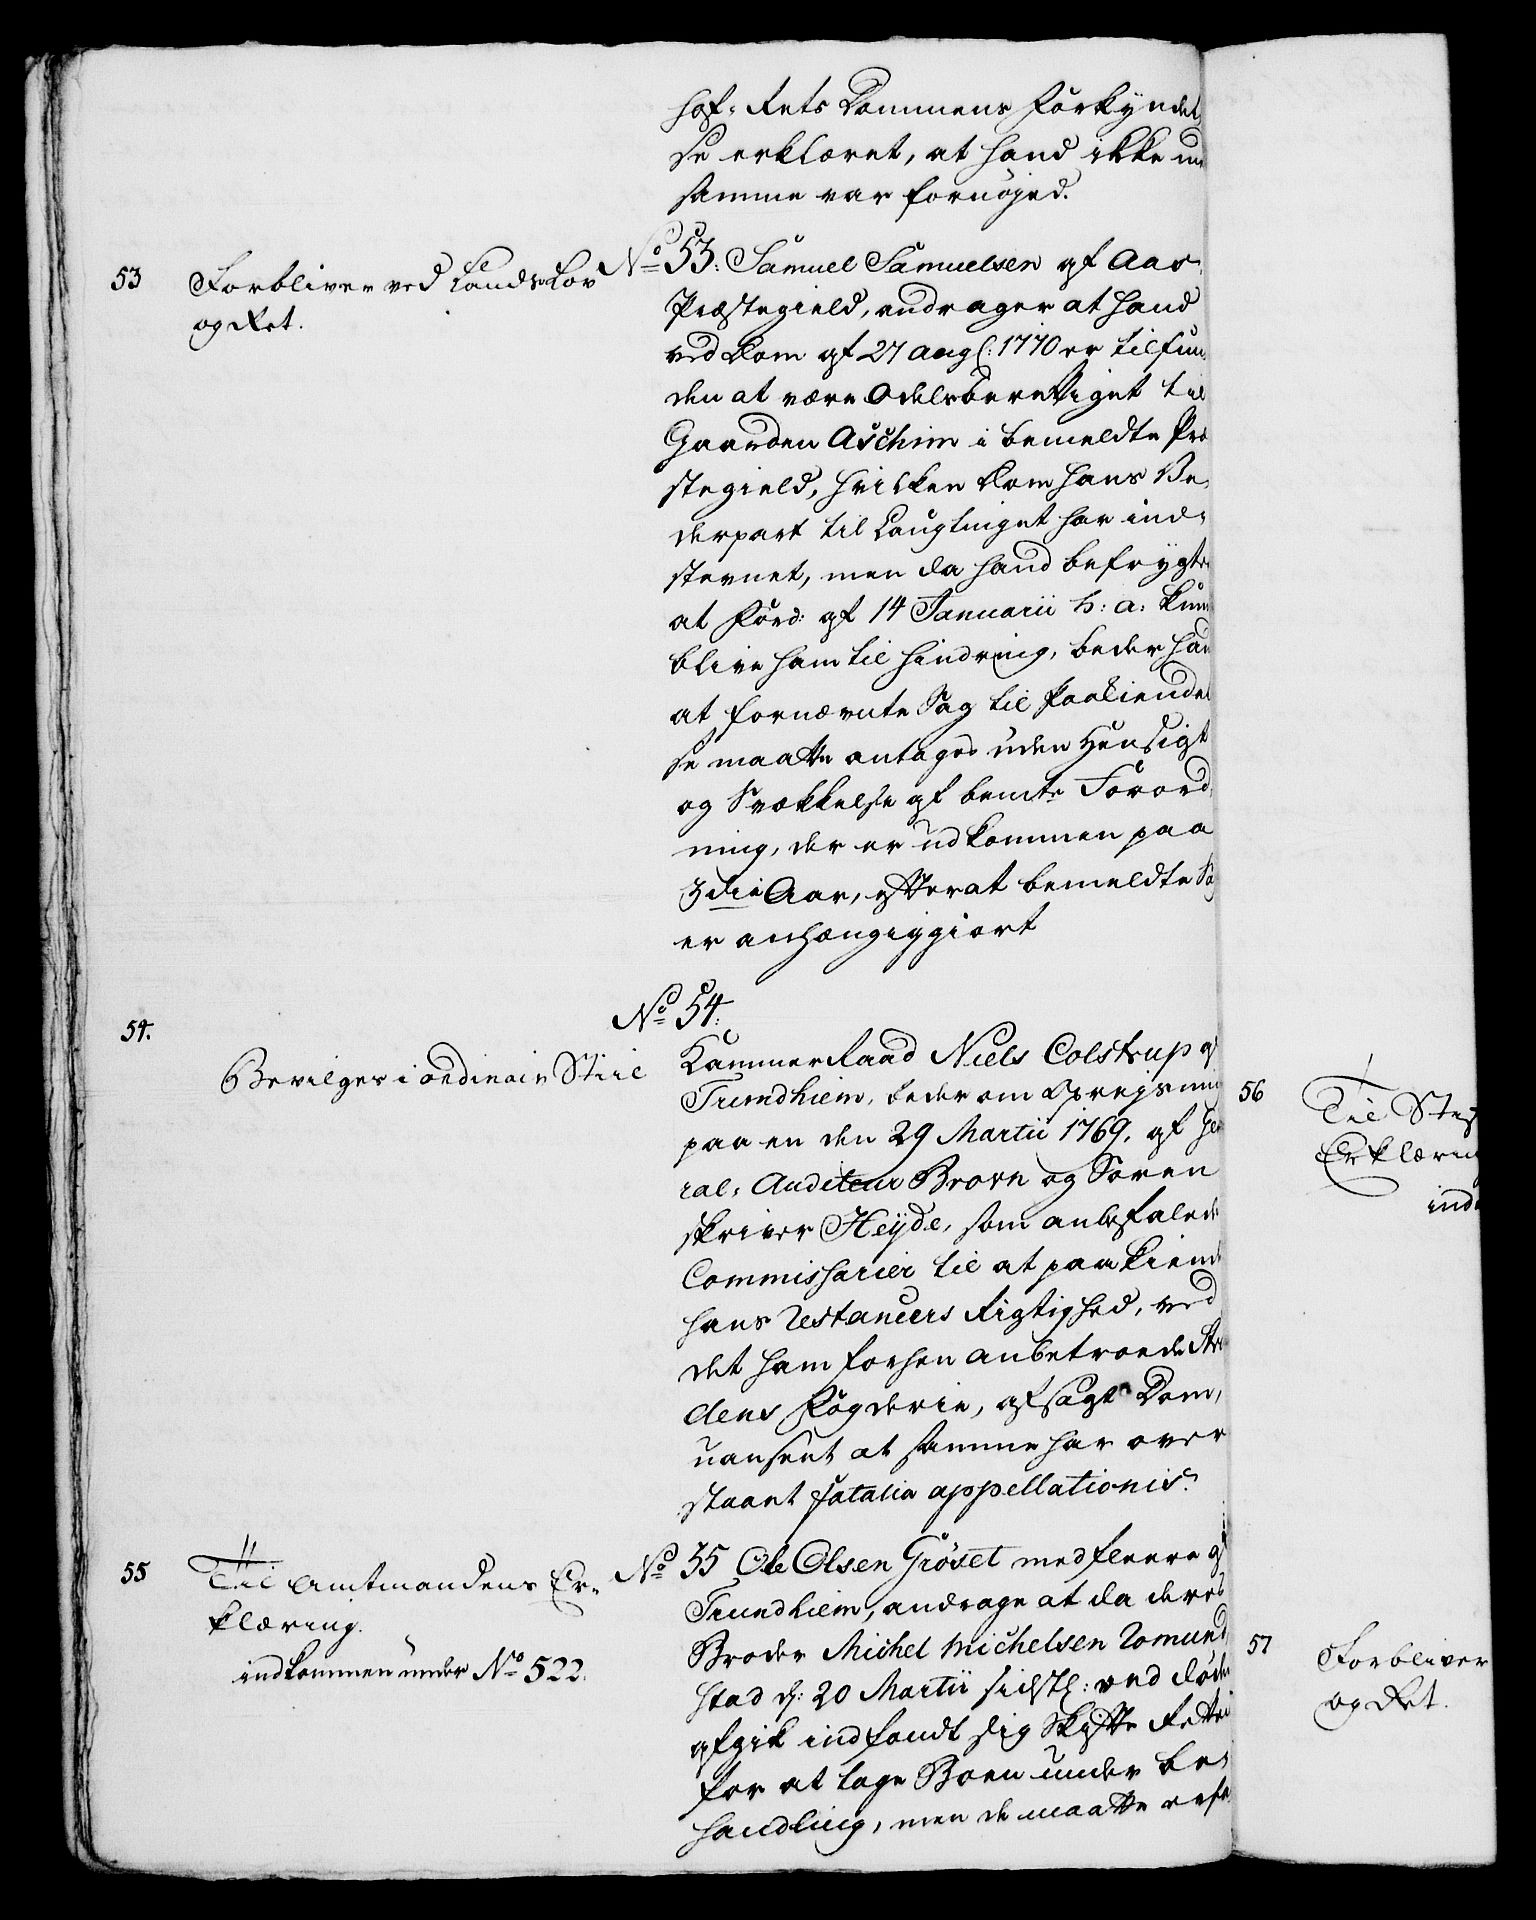 Hof-Rets Dommens Forkyndel
se erklæret, at hand ikke
samme var fornøjed.
53
Forbliver ved Lands Lov
og Ret.
No 53: Samuel Samuelsen af Aas
Præstegield, andrager at hand
ved Dom af 27 Aug: 1770 er tilfun
den at være Odelsberettiget til
Gaarden Aschim i bemeldte Præ
stegield, hvilken Dom hans Ve-
derpart til Laugtinget har ind-
stevnet, men da hand befrygter
at Ford: af 14 Januarii h: a: kun
blive ham til Hindring, beder han
at fornævnte Sag til Paakiendel
se maatte antages uden Hensigt
og Svækkelse af bemte Forord
ning, der er udkommen paa
3die Aar, efterat bemeldte Sag
er anhængiggiort
54.
Bevilges i ordinair Stiil
No 54:
Kammer Raad Niels Colstrup af
Trundhiem, beder om Oprejsning
paa en den 29 Martii 1769, af Gene
ral-Auditeur Brovn og Soren
skriver Heyde, som anbefalede
Commissarier til at paakiende
hans Restancers Rigtighed, ved
det ham forhen anbetroede
dens Fogderie, afsagt Dom,
uanseet at samme har over
staaet fatalia appellationis.
55
Til Amtmandens Er-
klæring.
indkommen under No 522.
No 55 Ole Olsen Gröset med fleere af
Trundhiem, andrage at da deres
Broder Michel Michelsen Romund
stad d: 20 Martii sidstl: ved Døden
afgik indfandt sig Skifte Retten
for at tage Boen under Be-
handling, men de maatte
56
Til Stift
Erklæring
ind
57
Forbliver
og Ret.